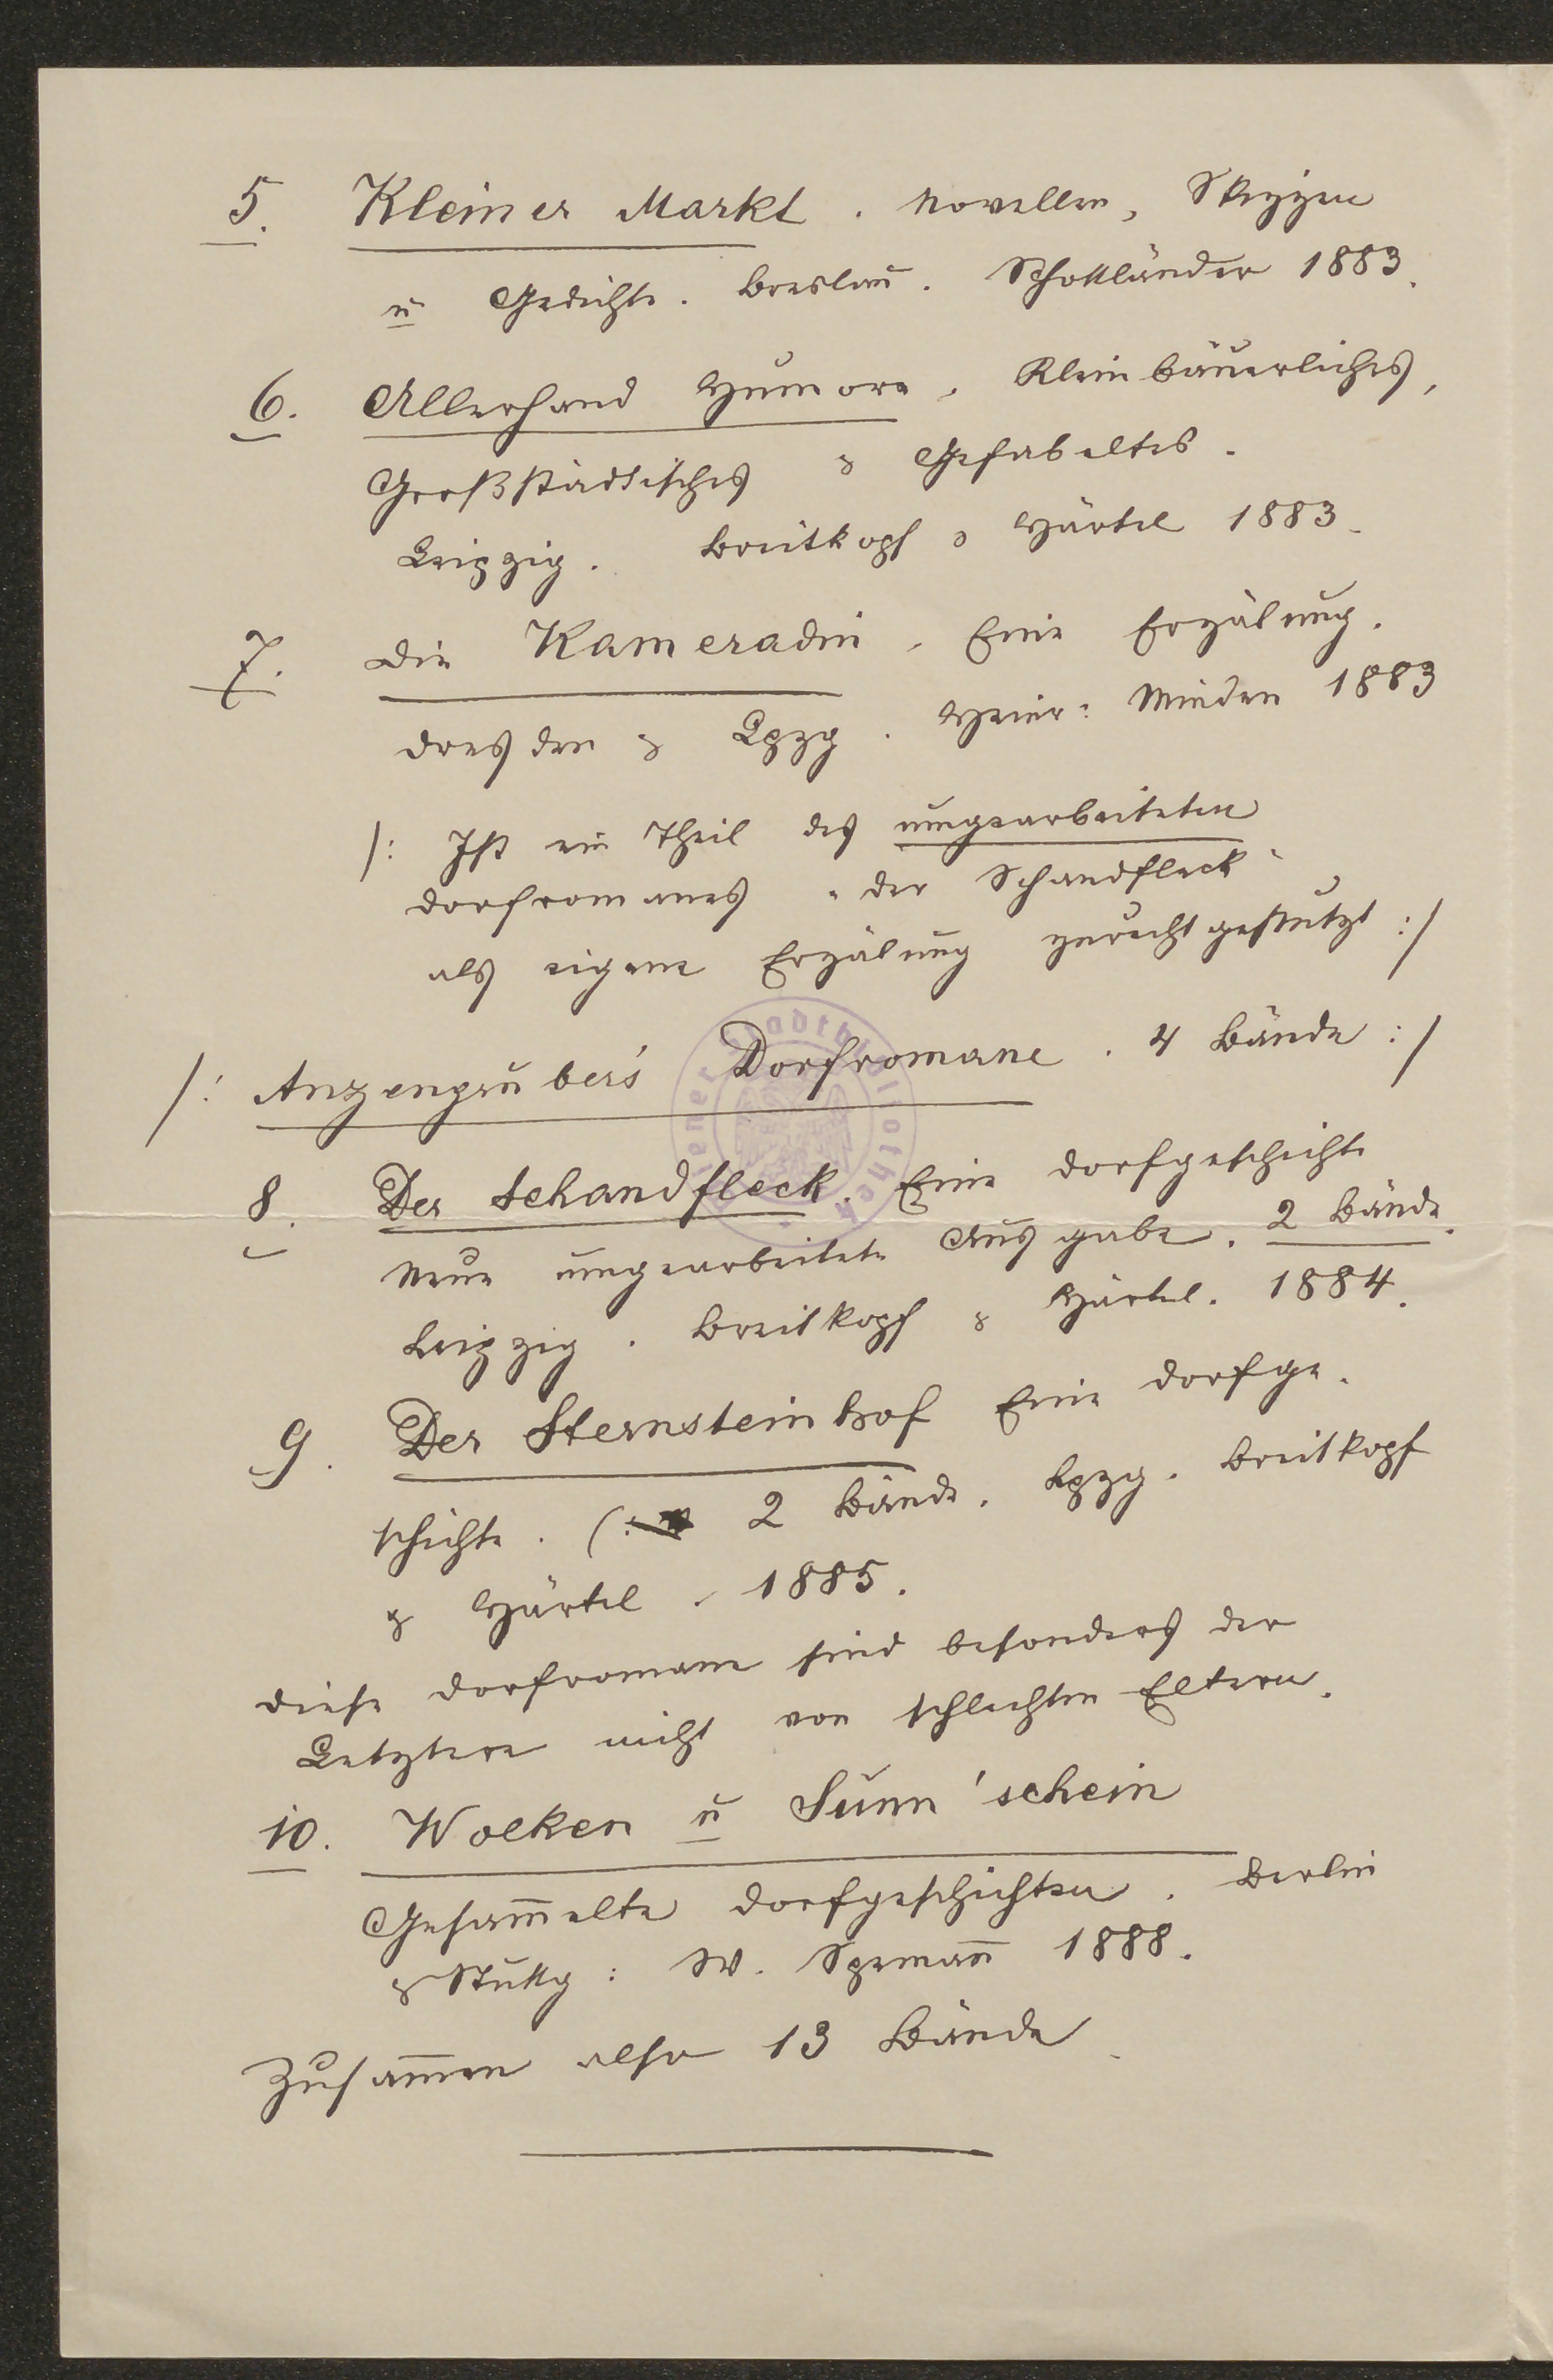 5. Kleiner Markt. Novellen, Skizzen
u Gedichte. Breslau. Schottländer 1883.
6. Allerhand Humore, Kleinbäuerliches,
Großstädtisches & Gefabeltes.
Leipzig. Breitkopf & Härtel 1883.
7. Die Kameradin. Eine Erzälung.
Dresden & Lpzg. Heinr: Minden 1883
/: Ist ein Theil des umgearbeiteten
Dorfromanes "Der Schandfleck"
als eigene Erzälung zurechtgestutzt :/
/: Anzengruber's Dorfromane. 4 Bände :/
8. Der Schandfleck. Eine Dorfgeschichte
Neue umgearbeitete Ausgabe. 2 Bände.
Leipzig. Breitkopf & Härtel. 1884.
9. Der Sternsteinhof Eine Dorfge-
schichte. (: 2 Bände. Lpzg. Breitkopf
& Härtel. 1885.
Diese Dorfromane sind besonders der
Letztere nicht von schlechten Eltern.
10. Wolken u Sunn'schein
Gesam̅elte Dorfgeschichten. Berlin
& Stuttg: W. Speman̅ 1888.
Zusam̅en also 13 Bände.
Wiener Stadtbibliothek